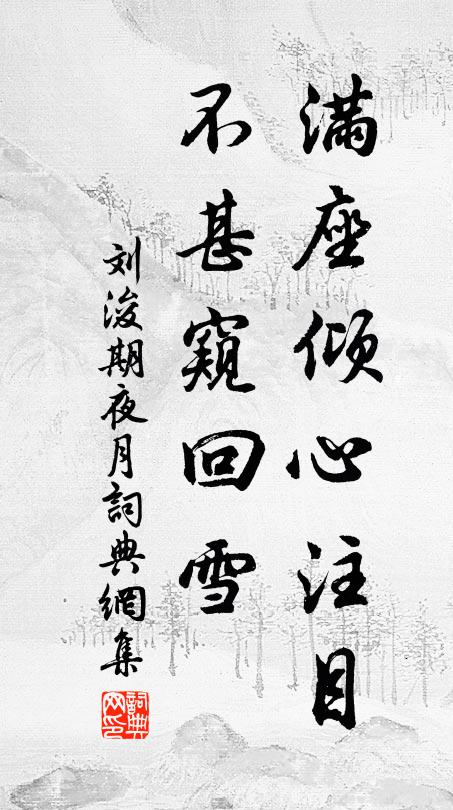 滿座傾心注目
不甚窺回雪
刘浚期夜月詞典網集
詞典网印